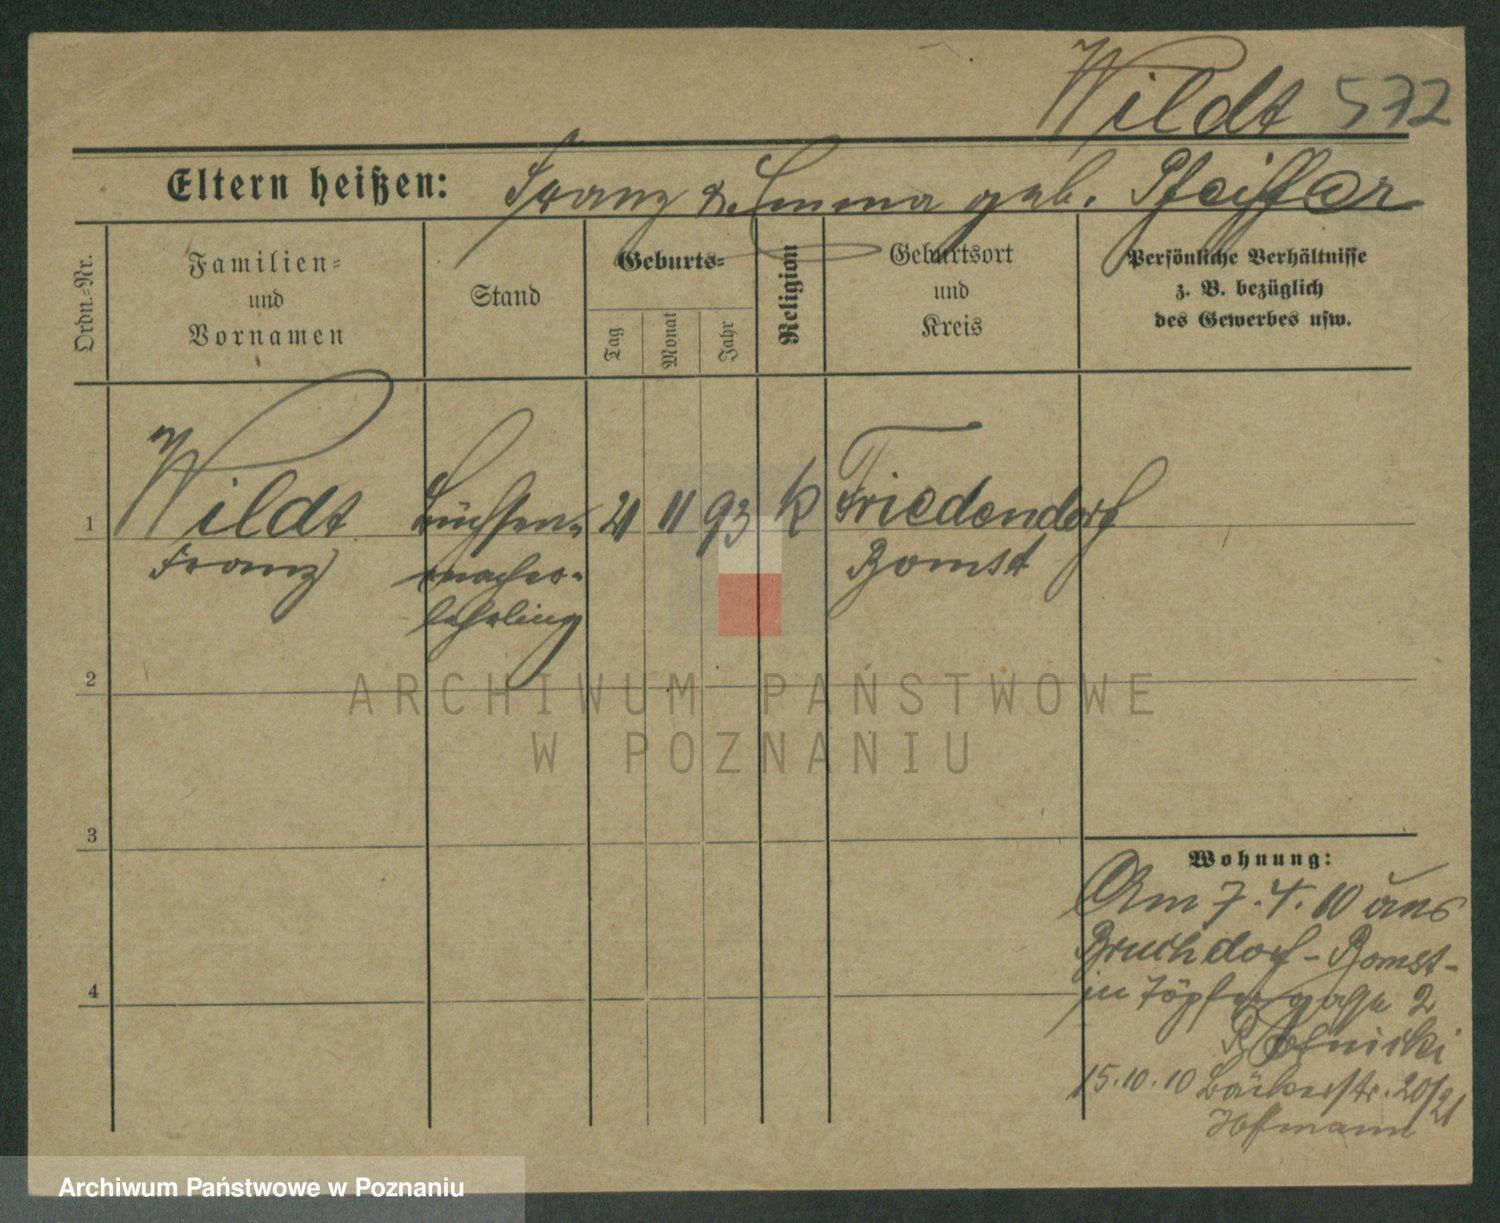 Wildt 572
Eltern heißen: Franz & Emma geb. Pfeiffer
Ordn.-Nr.
Familien-
und
Vornamen
Stand
Geburts-
Tag
Monat
Jahr
Religion
Geburtsort
und
Kreis
Persönliche Verhältnisse
z. B. bezüglich
des Gewerbes usw.
1
Wildt
Franz
Büchsen-
macher-
lehrling
21 11 93 k
Friedendorf
Bomst
2
3
4
Wohnung:
Am 7.4.10 aus
Bruchdorf-Bomst-
in Töpfergasse 2
15.10.10 Bäckerstr. 20/21
Hofmann
ARCHIWUM PAŃSTWOWE
W POZNANIU
Archiwum Państwowe w Poznaniu